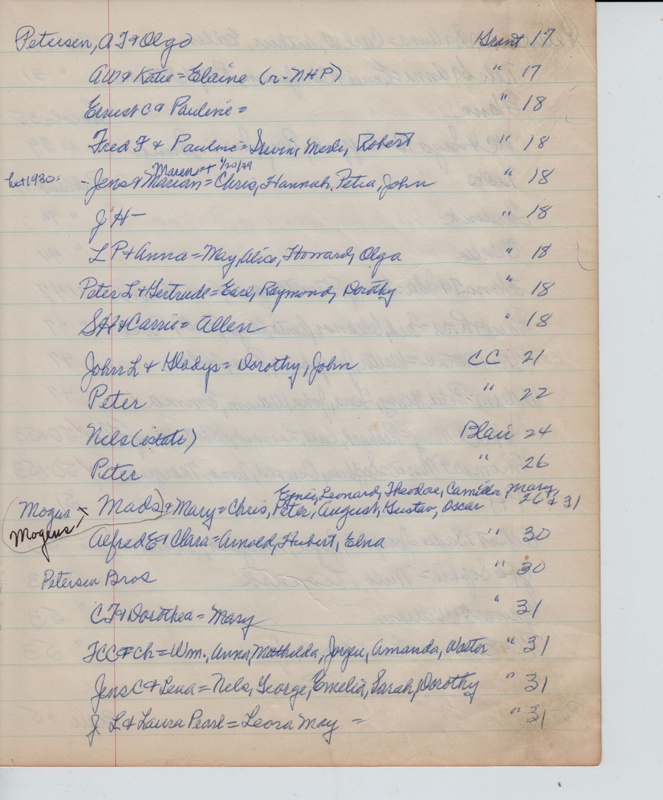 Petersen, AJ & Olga Grant 17
AW & Katie = Elaine (r-NHP) " 17
Ernest C & Pauline = " 18
Fred F & Pauline = Irvin, Merle, Robert " 18
Maren 1/20/29
- Jens & Marian = Chris, Hannah, Petra, John " 18
J H - " 18
L P & Anna = May, Alice, Howard, Olga " 18
Peter L & Gertrude = Earl, Raymond, Dorothy " 18
& Carrie = Allen " 18
John L & Gladys = Dorothy, John CC 21
Peter " 22
Nels (estate) Blair 24
Peter " 26
Leonard, Theodore, Camilla, Mary
Mogus + Mads & Mary = Chris, Peter, August, Gustav, Oscar " 26 & 31
Mogens
Alfred E & Clara = Arnold, Hubert, Edna " 30
Petersen Bros " 30
C J & Dorothea = Mary " 31
= Wm., Anna, Mathilda, Jorgen, Amanda, Walter " 31
Jens C & Lena = Nels, George, Emelia, Sarah, Dorothy " 31
J L & Laura Pearl = Leora May = " 31